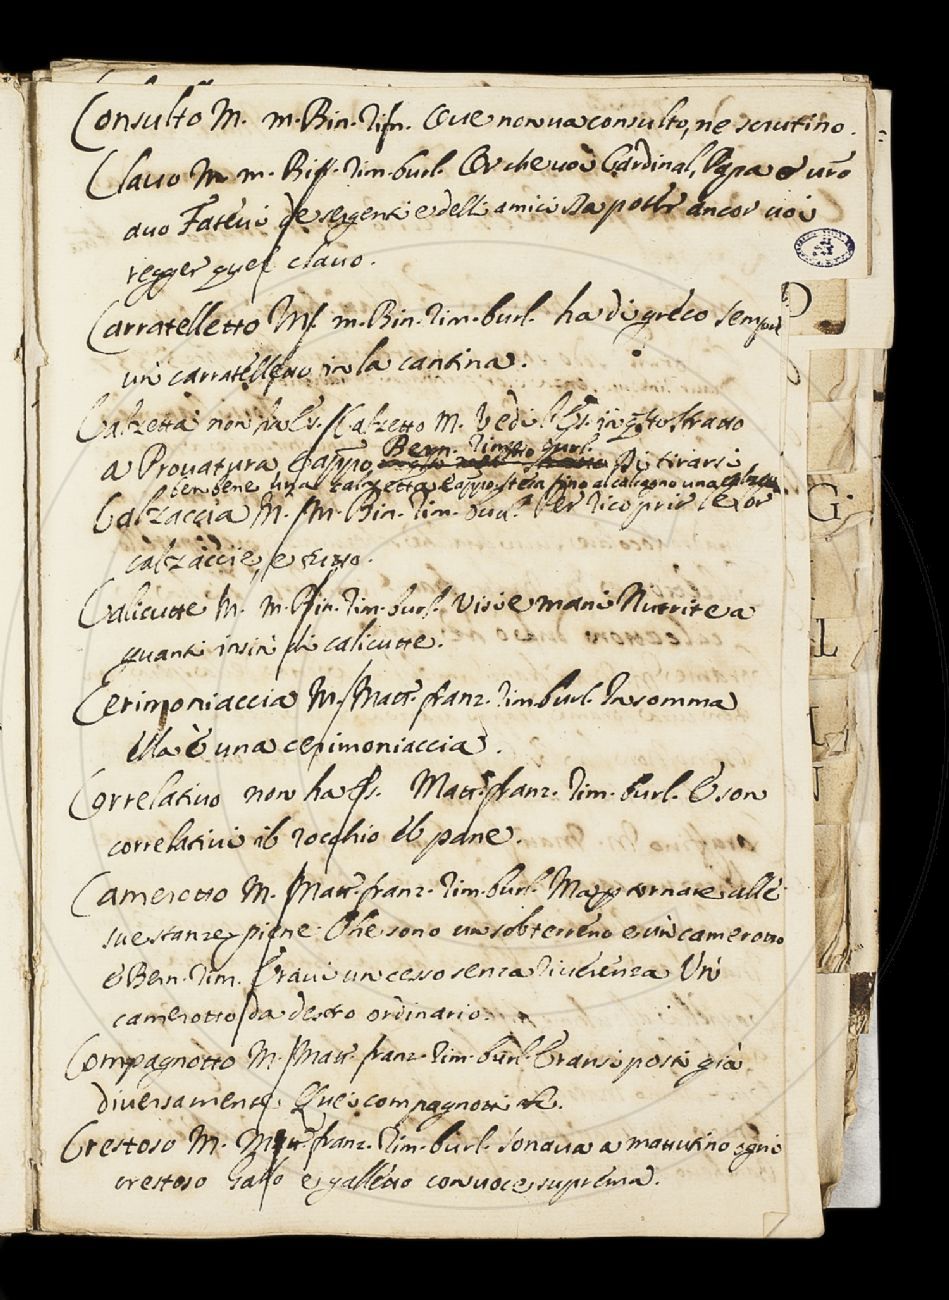 Consulto M. m. Bin. Rim. Ove non va consulto, ne scrutino.
Clavo M. m. Bin. Rim. burl. Or che voi Cardinal, Papa è vr̄o
avo Fatevi de segenti e delli amici Da poter ancor voi
regger quel clavo.
Carratelletto M. m. Bin. Rim. burl. ha di greco sempre
un carratelletto in la cantina.
Calzetta non ha Es. Calzetto M. Vedi l'Es. in q̄sto stratto
a Provatura, E appo Bern. Rime burl. Di tirarsi
ben bene una calzetta E appo stesa fino al calcagno una calzetta
Calzaccia M. m. Bin. Rim. burl. Per ricoprir le lor
calzaccie, e russo.
Calicutte M. m. Bin. Rim. burl. Visi e mani Nutrite a
guanti insin di calicutte.
Cerimoniaccia M. Matt. franz. Rim. burl. Insomma
Ella è una cerimoniaccia.
Correlativo non ha Es. Matt. franz. Rim. burl. E son
correlativi il rocchio el pane.
Camerotto M. Matt. franz. Rim. burl. Ma tornate alle
sue stanze piene Che sono un sobterreno e un camerotto
E Bern. Rim. Eravi un cesso senza riverenza Un
camerotto da destro ordinario.
Compagnotto M. Matt. franz. Rim. burl. Eransi posti già
diversamente Quei compagnotti &c.
Crestoso M. Matt. franz. Rim. burl. sonava a mattutino ogni
crestoso Gallo e galletto con voce suprema.
G
L
N